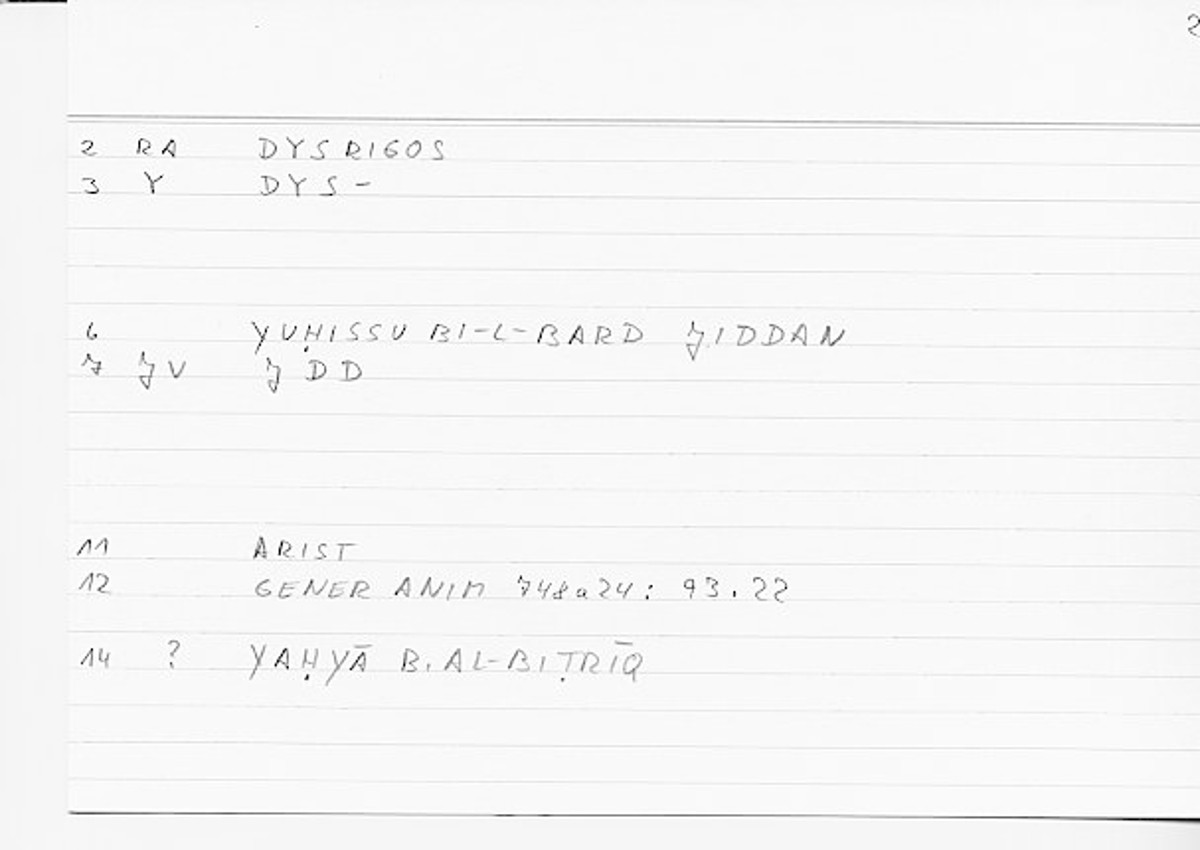 2
2 RA DYSRIGOS
3 Y DYS-
6 YUḤISSU BI-L-BARD JIDDAN
7 JV JDD
11 ARIST
12 GENER ANIM 748a24: 93.22
14 ? YAḤYĀ B. AL-BIṬRĪQ